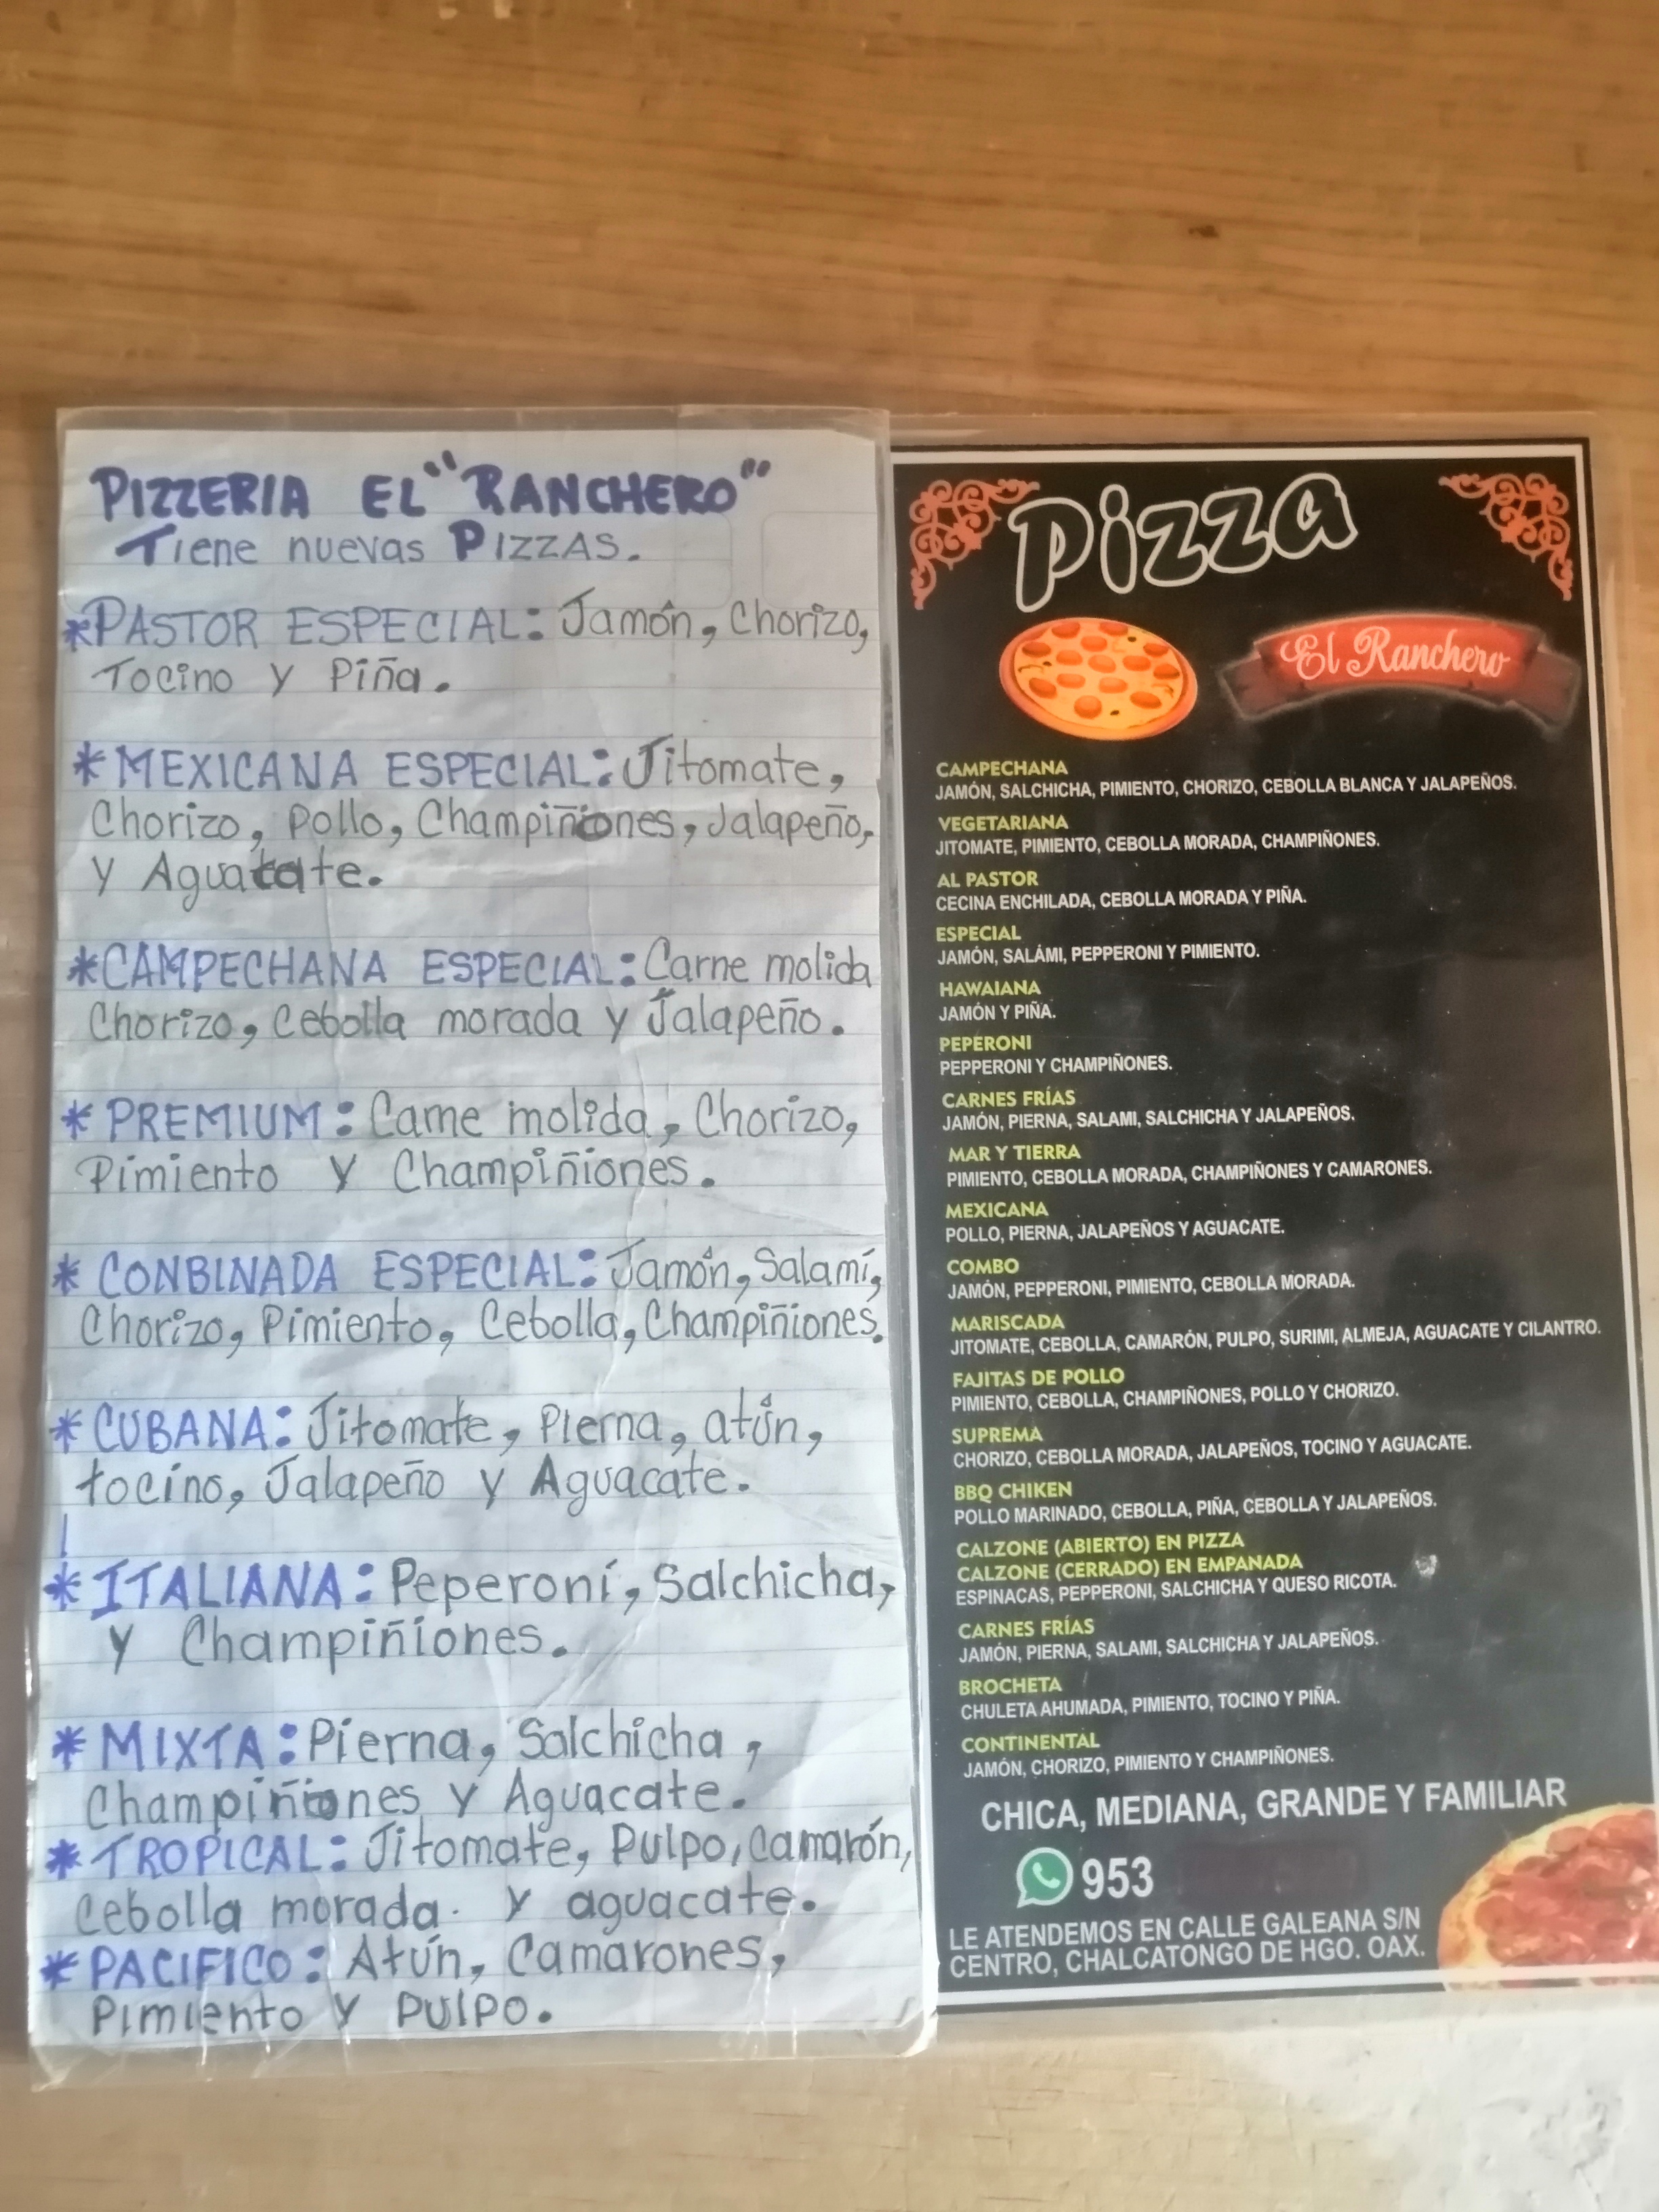 PIZZERIA EL "RANCHERO"
Tiene nuevas PIZZAS.
*PASTOR ESPECIAL: Jamón, Chorizo,
Tocino y Piña.
*MEXICANA ESPECIAL: Jitomate,
Chorizo, Pollo, Champiñiones, Jalapeño,
y Aguacate.
*CAMPECHANA ESPECIAL: Carne molida
Chorizo, Cebolla morada y Jalapeño.
* PREMIUM: Carne molida, Chorizo,
Pimiento y Champiñiones.
* CONBINADA ESPECIAL: Jamón, Salamí,
Chorizo, Pimiento, Cebolla, Champiñiones.
* CUBANA: Jitomate, Pierna, atún,
tocino, Jalapeño y Aguacate.
* ITALIANA: Peperoní, Salchicha,
y Champiñiones.
* MIXTA: Pierna, Salchicha,
Champiñiones y Aguacate.
* TROPICAL: Jitomate, Pulpo, Camarón,
Cebolla morada. y aguacate.
* PACIFICO: Atún, Camarones,
Pimiento y PULPO.
Pizza
El Ranchero
CAMPECHANA
JAMÓN, SALCHICHA, PIMIENTO, CHORIZO, CEBOLLA BLANCA Y JALAPEÑOS.
VEGETARIANA
JITOMATE, PIMIENTO, CEBOLLA MORADA, CHAMPIÑONES.
AL PASTOR
CECINA ENCHILADA, CEBOLLA MORADA Y PIÑA.
ESPECIAL
JAMÓN, SALÁMI, PEPPERONI Y PIMIENTO.
HAWAIANA
JAMÓN Y PIÑA.
PEPERONI
PEPPERONI Y CHAMPIÑONES.
CARNES FRÍAS
JAMÓN, PIERNA, SALAMI, SALCHICHA Y JALAPEÑOS.
MAR Y TIERRA
PIMIENTO, CEBOLLA MORADA, CHAMPIÑONES Y CAMARONES.
MEXICANA
POLLO, PIERNA, JALAPEÑOS Y AGUACATE.
COMBO
JAMÓN, PEPPERONI, PIMIENTO, CEBOLLA MORADA.
MARISCADA
JITOMATE, CEBOLLA, CAMARÓN, PULPO, SURIMI, ALMEJA, AGUACATE Y CILANTRO.
FAJITAS DE POLLO
PIMIENTO, CEBOLLA, CHAMPIÑONES, POLLO Y CHORIZO.
SUPREMA
CHORIZO, CEBOLLA MORADA, JALAPEÑOS, TOCINO Y AGUACATE.
BBQ CHIKEN
POLLO MARINADO, CEBOLLA, PIÑA, CEBOLLA Y JALAPEÑOS.
CALZONE (ABIERTO) EN PIZZA
CALZONE (CERRADO) EN EMPANADA
ESPINACAS, PEPPERONI, SALCHICHA Y QUESO RICOTA.
CARNES FRÍAS
JAMÓN, PIERNA, SALAMI, SALCHICHA Y JALAPEÑOS.
BROCHETA
CHULETA AHUMADA, PIMIENTO, TOCINO Y PIÑA.
CONTINENTAL
JAMÓN, CHORIZO, PIMIENTO Y CHAMPIÑONES.
CHICA, MEDIANA, GRANDE Y FAMILIAR
953
LE ATENDEMOS EN CALLE GALEANA S/N
CENTRO, CHALCATONGO DE HGO. OAX.